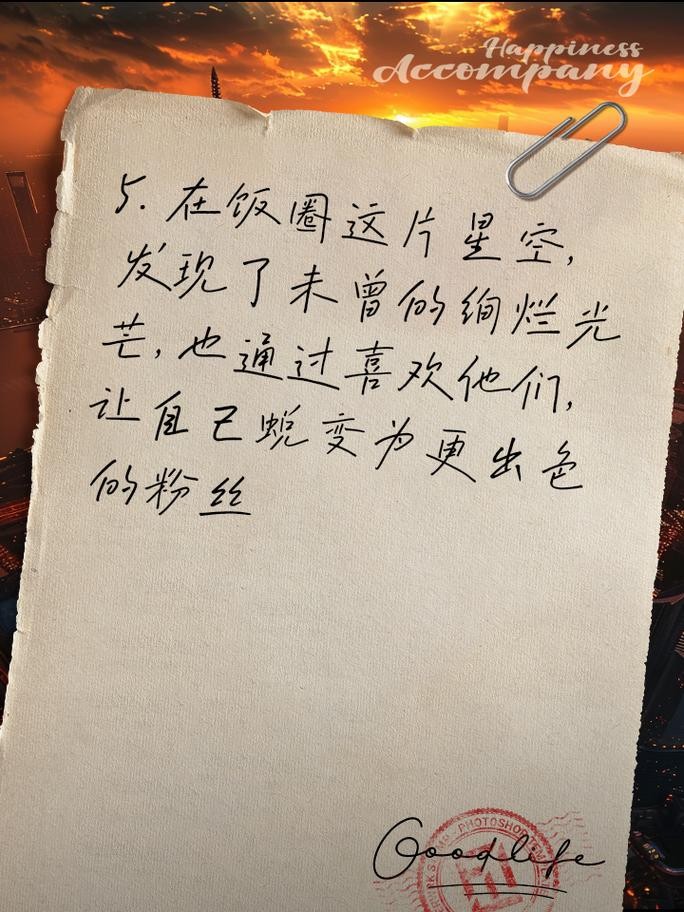 Happiness
Accompany
5. 在饭圈这片星空,
发现了未曾的绚烂光
芒, 也通过喜欢他们,
让自己蜕变为更出色
的粉丝
PHOTOSHOP
Goodlife